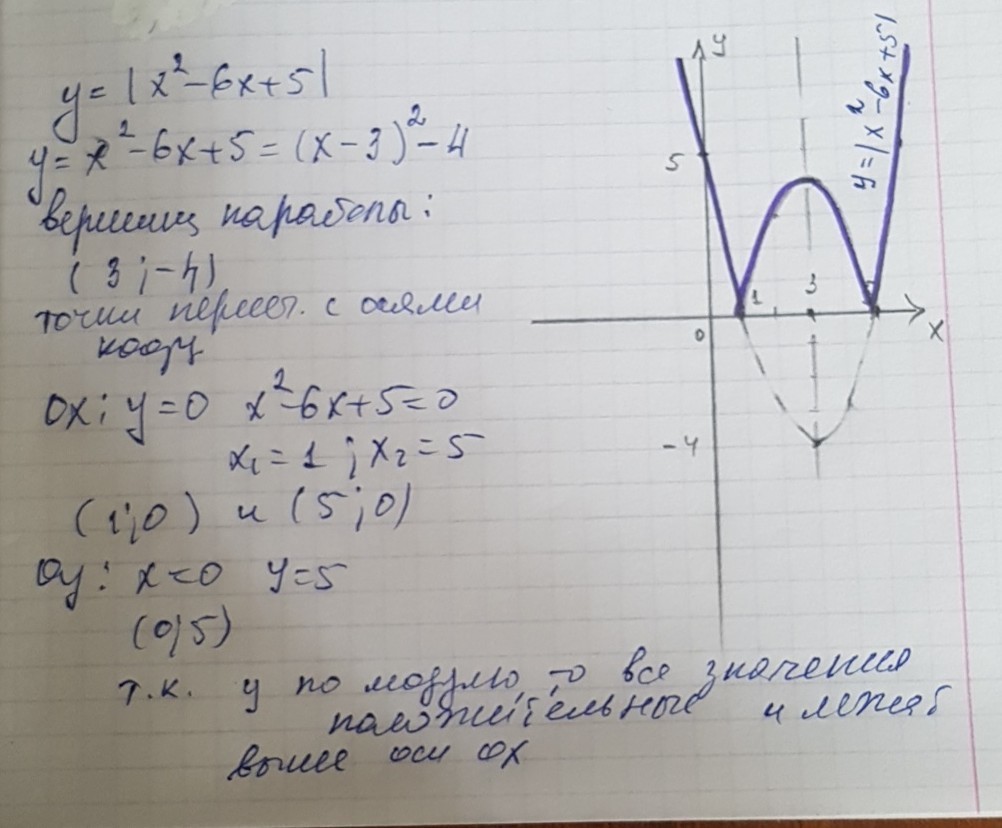 y = |x²-6x+5|
y = x²-6x+5 = (x-3)²-4
вершина параболы:
(3;-4)
точки перест. с осями
коорд
ОХ; y=0 x²-6x+5=0
x₁=1; x₂=5
(1;0) и (5;0)
Oy: x=0 y=5
(0;5)
т.к. y по модулю, то все значения
положительные и лежат
выше оси ОХ
y
y=|x²-6x+5|
5
1
3
5
0
x
-4